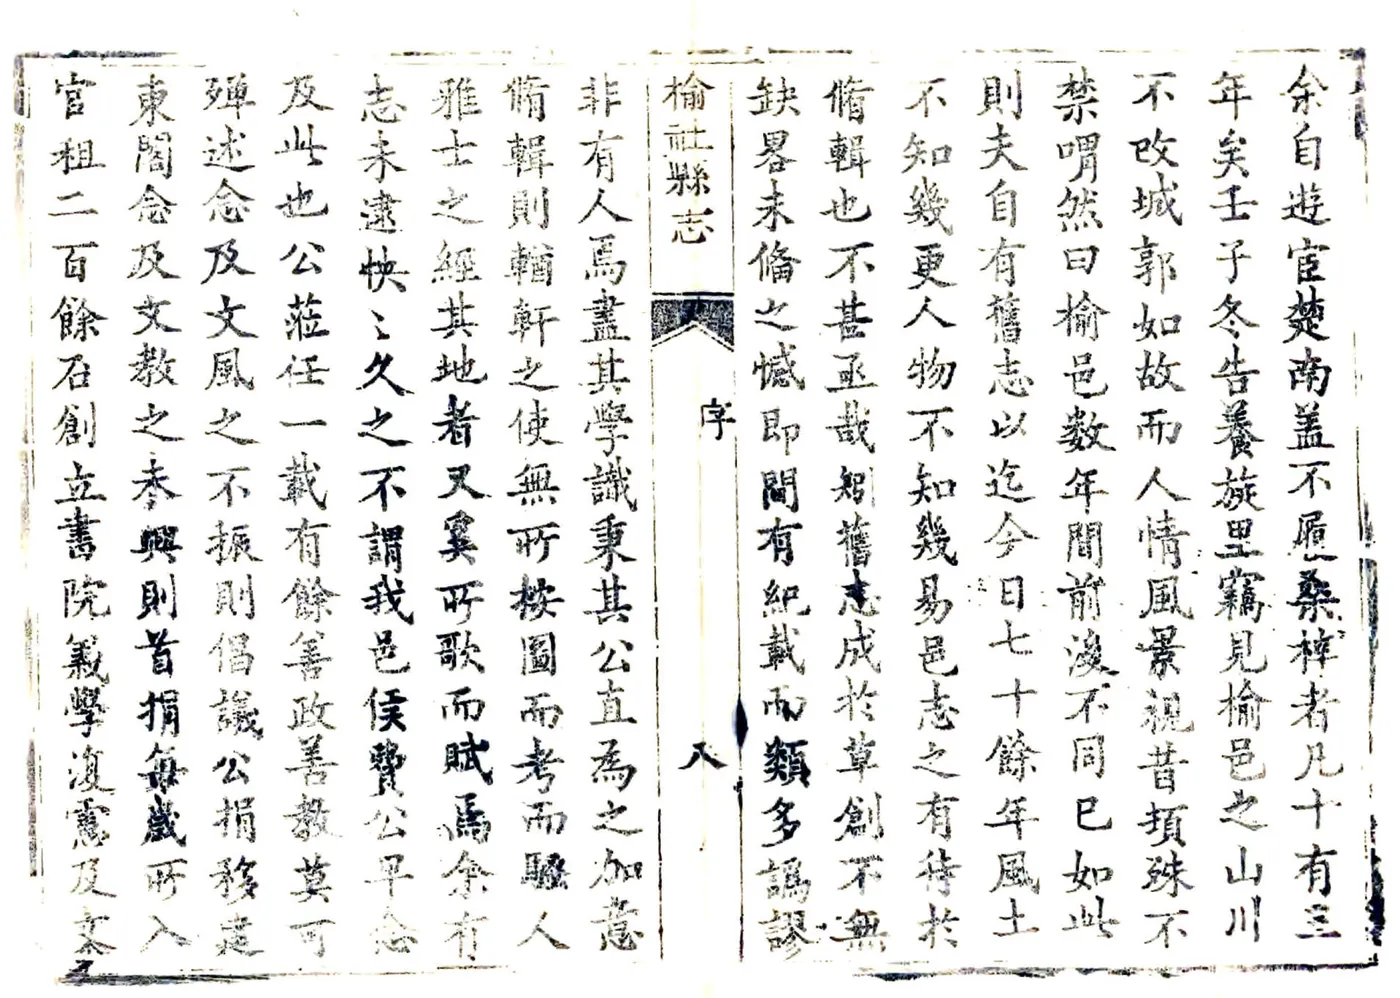 余自遊宦楚南盖不履桑梓者凡十有三
年矣壬子冬告養旋里竊見榆邑之山川
不改城郭如故而人情風景視昔頓殊不
禁喟然曰榆邑数年間前後不同已如此
則夫自有舊志以迄今日七十餘年風土
不知幾更人物不知幾易邑志之有待於
脩輯也不甚亟哉矧舊志成於草創不無
缺畧未俻之憾即間有紀載而類多譌謬
榆社縣志
序
八
非有人焉盡其學識秉其公直為之加意
脩輯則輶軒之使無所按圖而考而騷人
雅士之經其地者又奚所歌而賦焉余有
志未逮怏〻久之不謂我邑侯費公早念
及此也公蒞任一載有餘善政善教莫可
殫述念及文風之不振則倡議公捐移建
東閣念及文教之未興則首捐每歲所入
官租二百餘石創立書院義學復慮及文